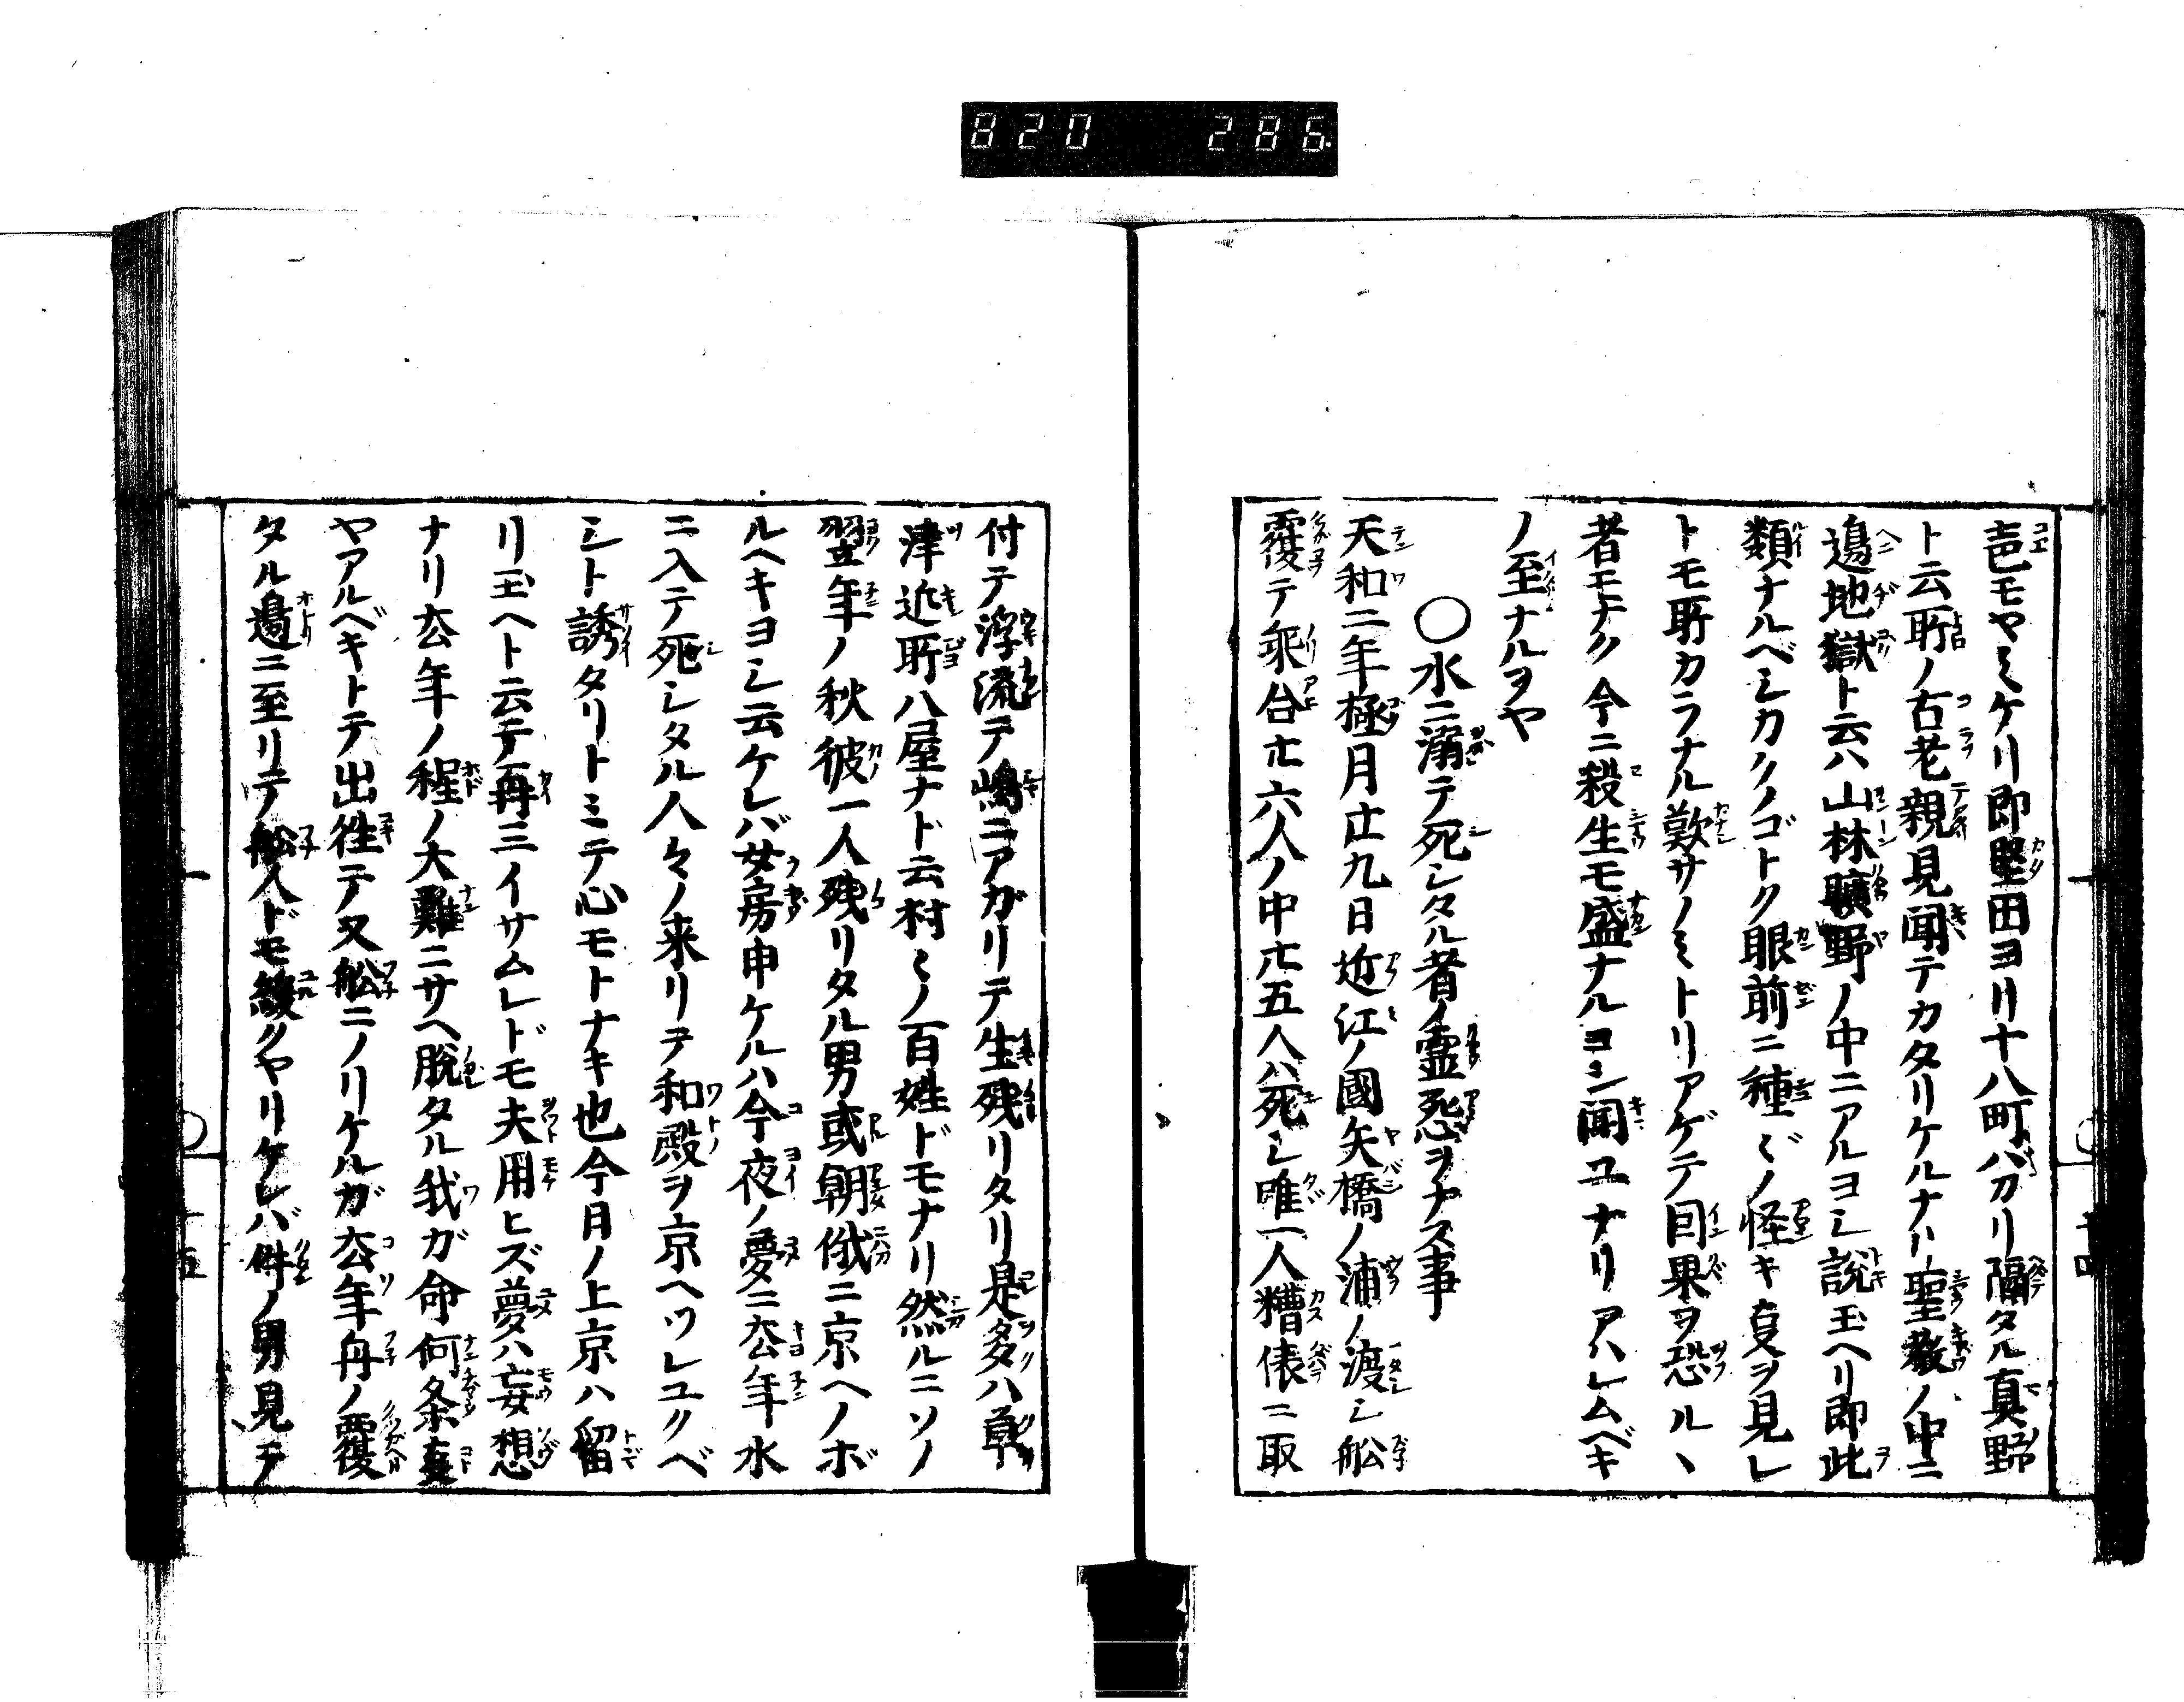 820 286
壱モヤミケリ即堅田ヨリ十八町バカリ隔タル真野
ト云所ノ古老親見聞テカタリケルナリ聖教ノ中ニ
邊地獄ト云ハ山林曠野ノ中ニアルヨシ説玉ヘリ即此
類ナルベシカクノゴトク眼前ニ種〻ノ怪キ事ヲ見レ
トモ所カラナル歎サノミトリアゲテ因果ヲ恐ルヽ
者モナク今ニ殺生モ盛ナルヨシ聞ユナリアハレムベキ
ノ至ナルヲヤ
○水ニ溺テ死シタル者ノ霊恐ヲナス事
天和二年極月廿九日近江ノ國矢橋ノ浦ノ渡シ舩
覆テ乗合廿六人ノ中廿五人ハ死シ唯一人糟俵ニ取
付テ浮流テ嶋ニアガリテ生残リタリ是多ハ草
津近所八屋ナド云村〻ノ百姓ドモナリ然ルニソノ
翌年ノ秋彼一人残リタル男或朝俄ニ京ヘノボ
ルヘキヨシ云ケレバ女房申ケルハ今夜ノ夢ニ去年水
ニ入テ死シタル人々ノ来リテ和殿ヲ京ヘツレユクベ
シト誘タリトミテ心モトナキ也今月ノ上京ハ留
リ玉ヘト云テ再三イサムレドモ夫用ヒズ夢ハ妄想
ナリ去年ノ程ノ大難ニサヘ脱タル我ガ命何条事
ヤアルベキトテ出徃テ又舩ニノリケルガ去年舟ノ覆
タル邉ニ至リテ舩人ドモ緩クヤリケレバ件ノ男見テ